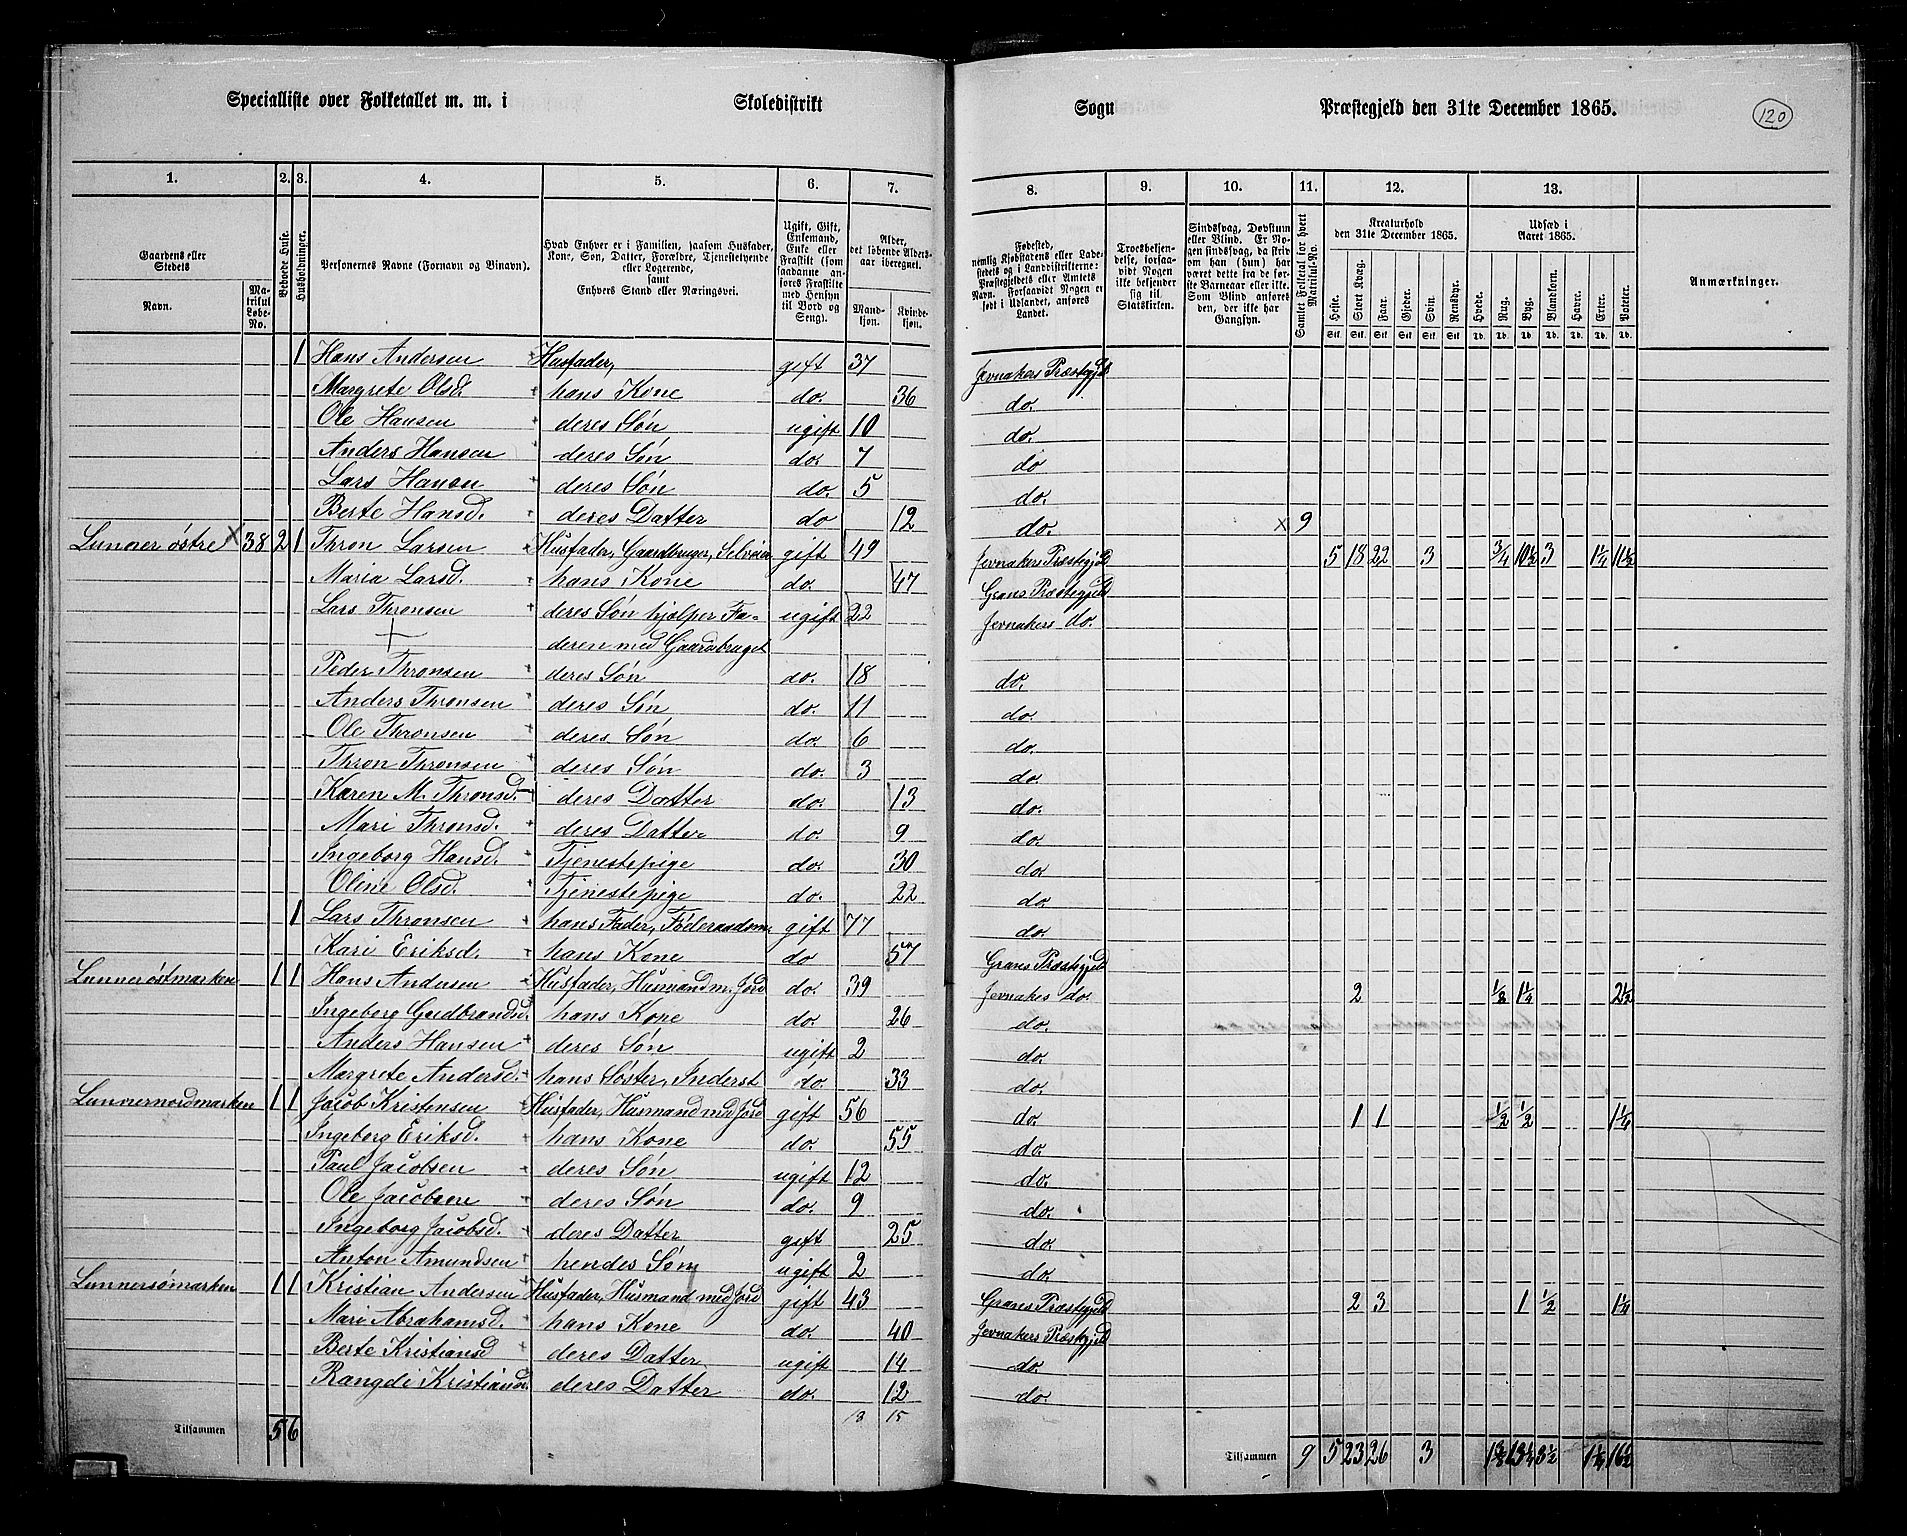 Specialliste over Folketallet m. m. i Skoledistrikt Sogn Præstegjeld den 31te December 1865. 120
1. 2. 3. 4. 5. 6. 7. 8. 9. 10. 11. 12. 13.
Gaardens eller Stedets Navn. Matrikul Løbe-No. Beboede Huse. Husholdninger. Personernes Navne (Fornavn og Binavn). Hvad Enhver er i Familien, saasom Husfader, Kone, Søn, Datter, Forældre, Tjenestetyende eller Logerende, samt Enhvers Stand eller Næringsvei. Ugift, Gift, Enkemand, Enke eller Fraskilt (som saadanne anføres Fraskilte med Hensyn til Bord og Seng). Alder, det løbende Aldersaar iberegnet. Mandkjøn. Kvindekjøn. Fødested, nemlig Kjøbstadens eller Ladestedets og i Landdistrikterne: Præstegjeldets eller Amtets Navn. Forsaavidt Nogen er født i Udlandet, anføres Landet. Troesbekjendelse, forsaavidt Nogen ikke bekjender sig til Statskirken. Sindssvag, Døvstum eller Blind. Er Nogen sindssvag, da skriv om han (hun) har været dette fra de første Barneaar eller ikke. Som Blind anføres den, der ikke har Gangsyn. Samlet Folketal for hvert Matrikul-No. Kreaturhold den 31te December 1865. Heste. Stort Kvæg. Faar. Gjeder. Svin. Rensdyr. Udsæd i Aaret 1865. Hvede. Rug. Byg. Blandkorn. Havre. Erter. Poteter. Anmærkninger.
Stk. Stk. Stk. Stk. Stk. Stk. Td. Td. Td. Td. Td. Td. Td.
1 Hans Andersen Husfader, gift 37 Jevnakers Præstegjeld
Margrete Olsd. hans Kone do. 36 do.
Ole Hansen deres Søn ugift 10 do.
Anders Hansen deres Søn do. 7 do
Lars Hansen deres Søn do. 5 do.
Berte Hansd. deres Datter do 12 do. × 9
Lunner østre × 38 2 1 Thron Larsen Husfader, Gaardbruger, Selveier gift 49 Jevnakers Præstegjeld 5 18 22 3 3/4 10 1/2 3 1 1/4 11 1/2
Maria Larsd. hans Kone do. 47 Grans Præstegjeld
Lars Thronsen deres Søn hjælper Fa- ugift 22 Jevnakers do.
deren med Gaardsbruget
Peder Thronsen deres Søn do. 18 do.
Anders Thronsen deres Søn do. 11 do.
Ole Thronsen deres Søn do. 6 do.
Thron Thronsen deres Søn do. 3 do.
Karen M. Thronsd. deres Datter do. 13 do.
Mari Thronsd. deres Datter do. 9 do.
Ingeborg Hansd. Tjenestepige do. 30 do.
Oline Olsd. Tjenestepige do. 22 do.
1 Lars Thronsen hans Fader, Føderaadsm. gift 77 do.
Kari Eriksd. hans Kone do 57 Grans Præstegjeld
Lunnerøstmarken 1 1 Hans Andersen Husfader, Husmand m. Jord do. 39 Jevnakers do. 2 1/8 1 1/4 2 1/2
Ingeborg Gudbrandsd. hans Kone do. 26 do.
Anders Hansen deres Søn ugift 2 do.
Margrete Andersd. hans Søster, Inderst do. 33 do.
Lunnernordmarken 1 1 Jacob Kristensen Husfader, Husmand med Jord gift 56 do. 1 1 1/2 1/2 1 1/4
Ingeborg Eriksd. hans Kone do. 55 do.
Paul Jacobsen deres Søn ugift 12 do.
Ole Jacobsen deres Søn do. 9 do.
Ingeborg Jacobsd. deres Datter gift 25 do.
Anton Amundsen hendes Søn ugift 2 do.
Lunnersømarken 1 1 Kristian Andersen Husfader, Husmand med Jord gift 43 Grans Præstegjeld 2 3 1 1/2 1 1/4
Mari Abrahamsd. hans Kone do. 40 Jevnakers Præstegjeld
Berte Kristiansd deres Datter ugift 14 do.
Rangdi Kristiansd. deres Datter do. 12 do.
18 15
Tilsammen 5 6 Tilsammen 9 5 23 26 3 1 3/8 13 1/4 3 1/2 1 1/4 16 1/2